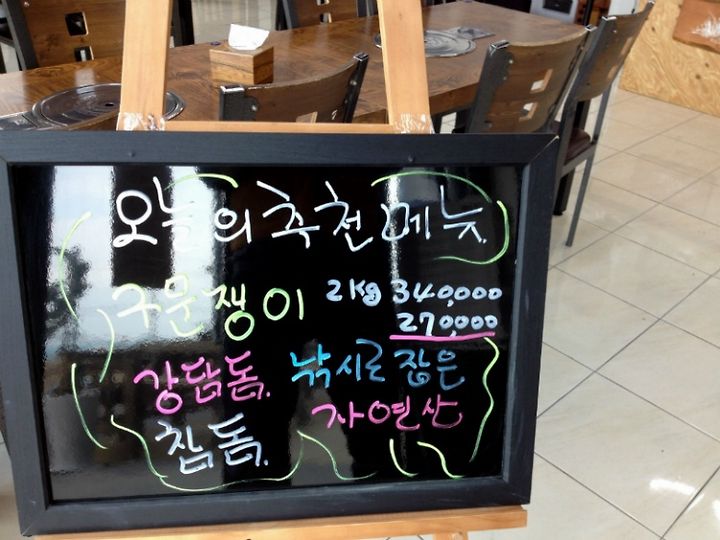 오늘의 추천메뉴.
구문쟁이 2kg 340,000
270,000
강담돔. 낚시로 잡은
참돔. 자연산